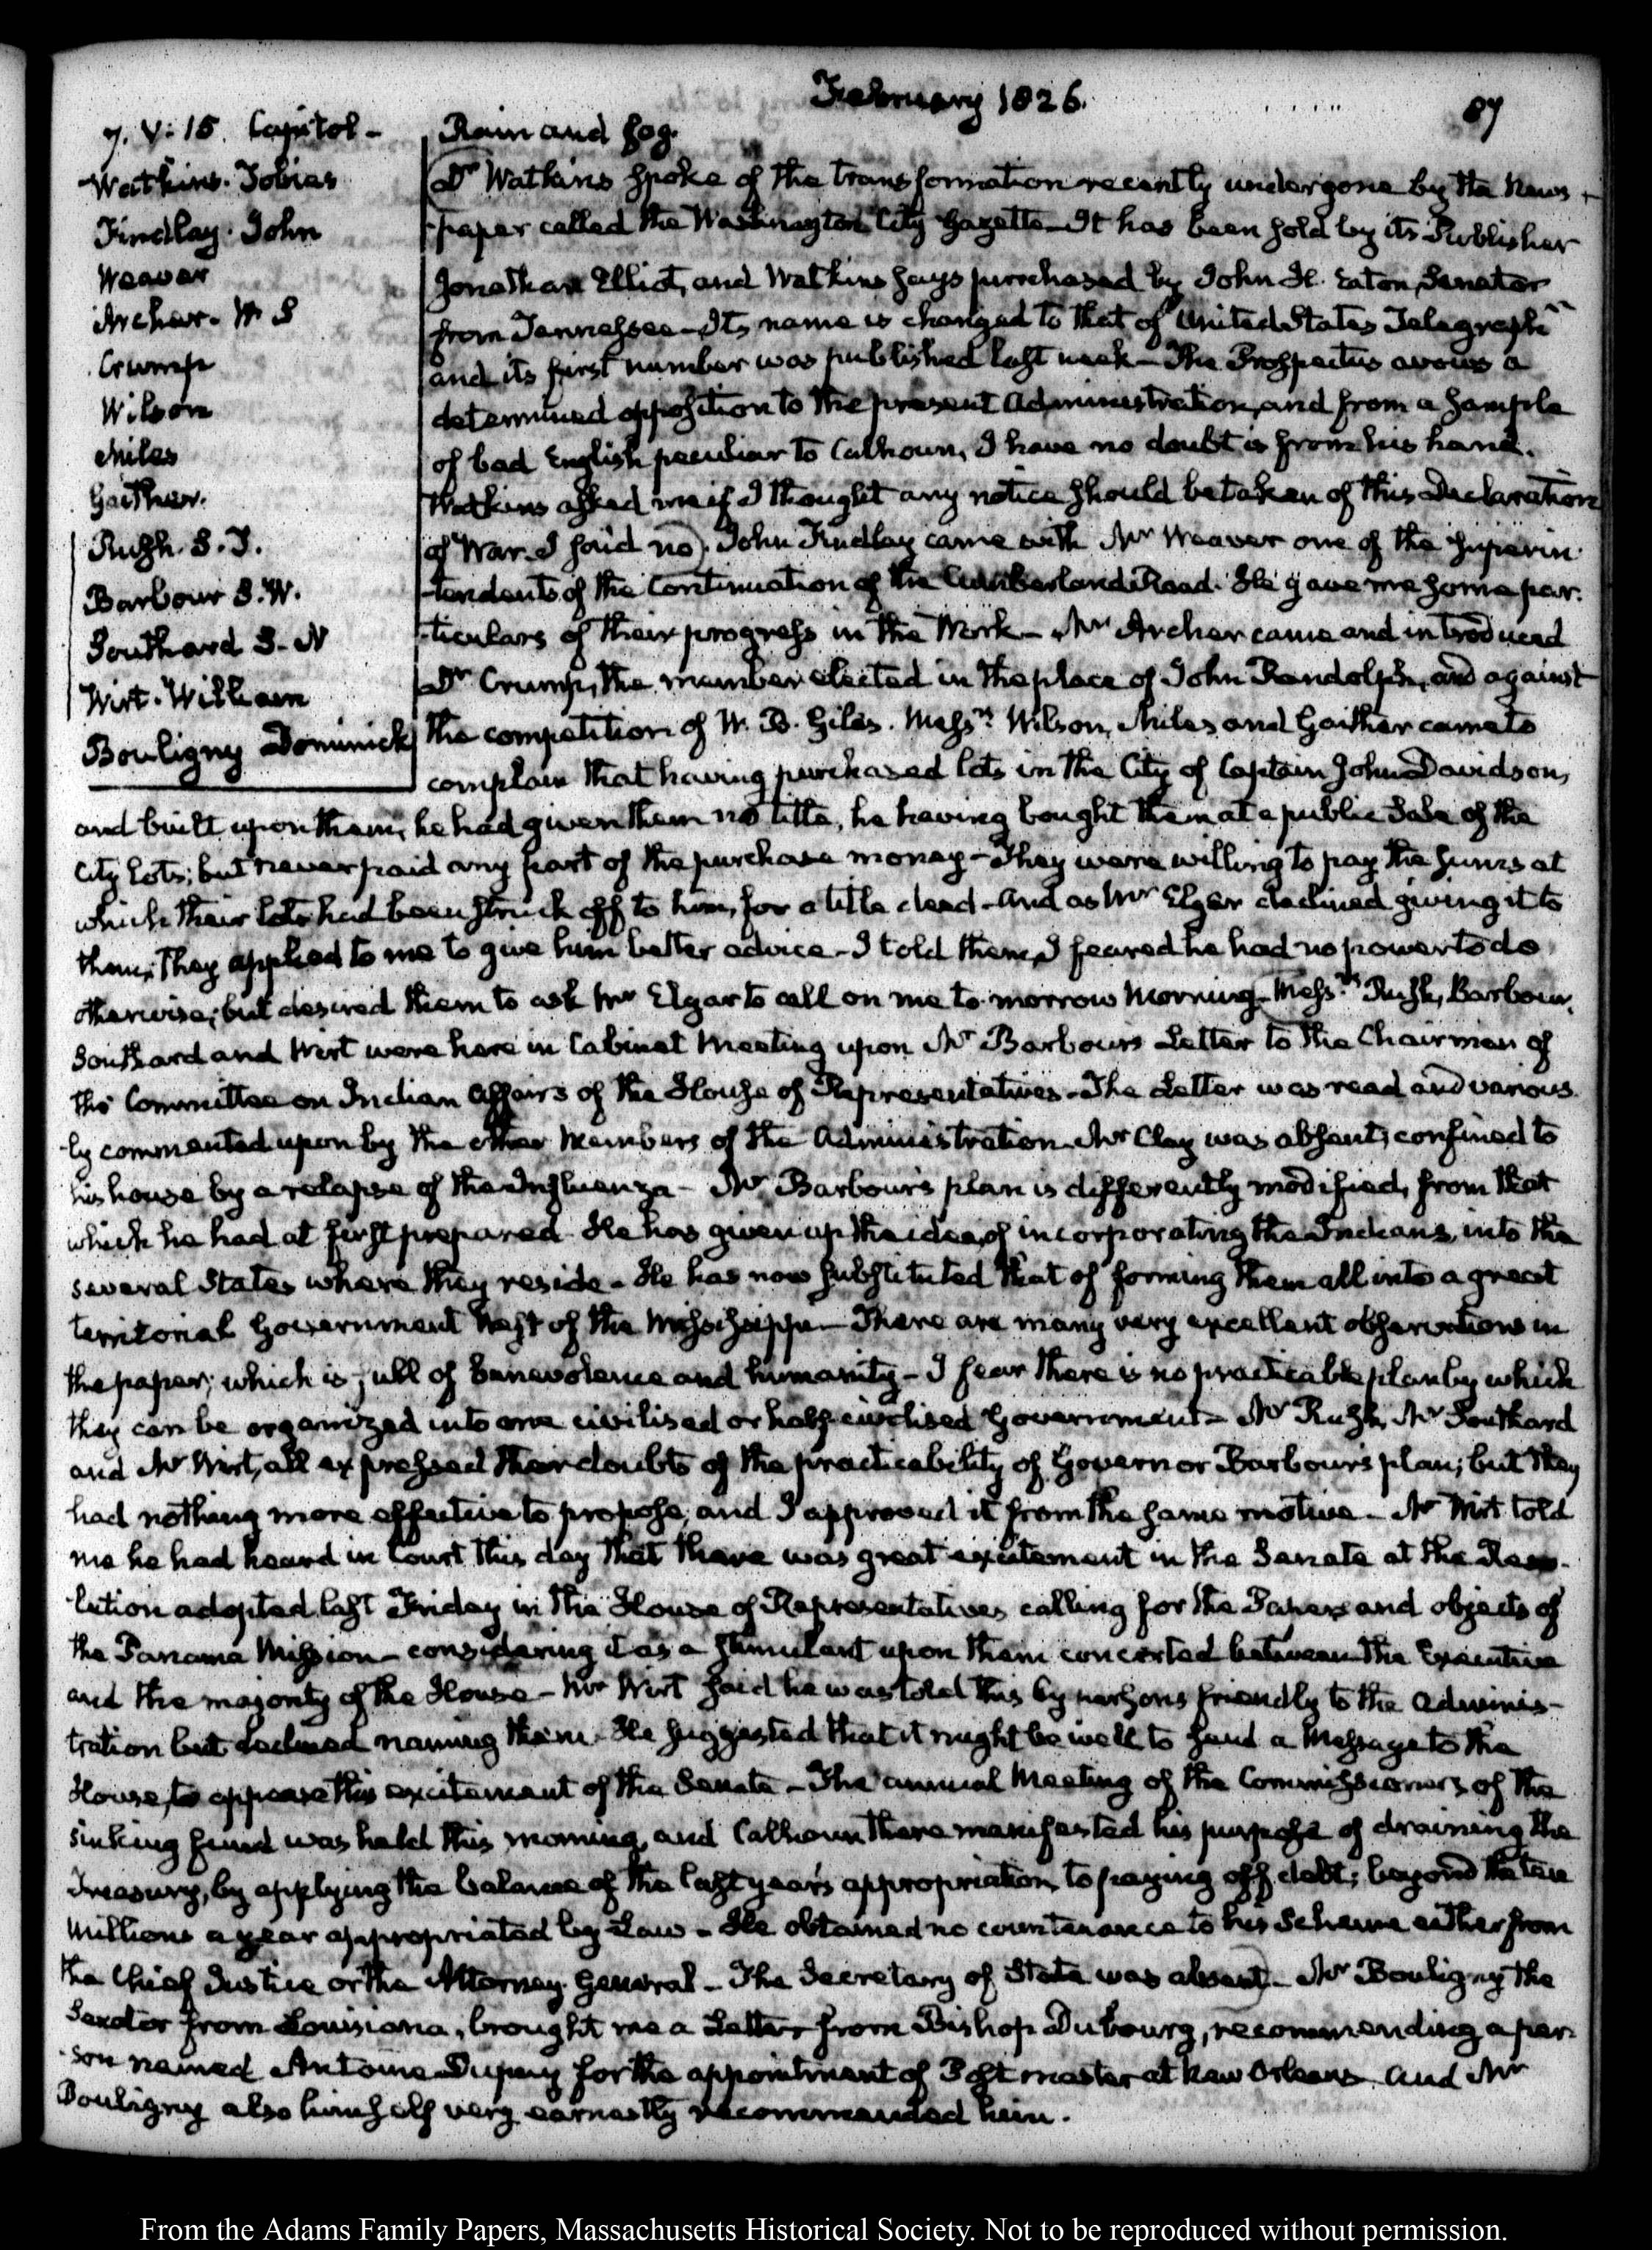 February 1826.
87
7. V: 15. Capitol-
Watkins. Tobias
Findlay. John
Weaver
Archer. W S
Crump
Wilson
Miles
Gaither.
Rush. S. T.
Barbour S. W.
Southard S. N
Wirt. William
Bouligny Dominick
Rain and fog.
Dr Watkins spoke of the transformation recently undergone by the News-
paper called the Washington City Gazette_ It has been sold by its Publisher
Jonathan Elliot, and Watkins says purchased by John H. Eaton, Senator
from Tennessee_ Its name is changed to that of United States Telegraph
and its first number was published last week_ The Prospectus avows a
determined opposition to the present Administration, and from a sample
of bad English peculiar to Calhoun, I have no doubt is from his hand.
Watkins asked me if I thought any notice should be taken of this Declaration
of War. I said no). John Findlay came with Mr Weaver one of the Superin-
tendents of the Continuation of the Cumberland Road. He gave me some par-
ticulars of their progress in the Work_ Mr Archer came and introduced
Dr Crump, the member elected in the place of John Randolph, and against
the competition of W. B. Giles. Messrs Wilson, Miles and Gaither came to
complain that having purchased lots in the City of Captain John Davidson,
and built upon them, he had given them no title, he having bought them at a public Sale of the
City Lots; but never paid any part of the purchase money_ They were willing to pay the sums at
which their lots had been struck off to him, for a title deed_ And as Mr Elgar declined giving it to
them; They applied to me to give him better advice_ I told them, I feared he had no power to do
otherwise; but desired them to ask Mr Elgar to call on me to-morrow Morning_ Messrs Rush, Barbour,
Southard and Wirt were here in Cabinet Meeting upon Mr Barbour's Letter to the Chairman of
the Committee on Indian Affairs of the House of Representatives_ The Letter was read and various-
ly commented upon by the other Members of the Administration. Mr Clay was absent; confined to
his house by a relapse of the Influenza_ Mr Barbour's plan is differently modified, from that
which he had at first prepared. He has given up the idea, of incorporating the Indians, into the
several States where they reside_ He has now substituted that of forming them all into a great
territorial Government West of the Mississippi_ There are many very excellent observations in
the paper; which is full of benevolence and humanity_ I fear there is no practicable plan by which
they can be organized into one civilised or half civilised Government_ Mr Rush, Mr Southard
and Mr Wirt, all expressed their doubts of the practicability of Governor Barbour's plan; but they
had nothing more effective to propose, and I approved it from the same motive_ Mr Wirt told
me he had heard in Court this day that there was great excitement in the Senate at the Reso-
lution adopted last Friday in the House of Representatives calling for the Papers and objects of
the Panama Mission_ considering it as a stimulant upon them concerted between the Executive
and the majority of the House_ Mr Wirt said he was told this by persons friendly to the adminis-
tration but declined naming them. He suggested that it might be well to send a Message to the
House, to appease this excitement of the Senate_ The annual Meeting of the Commissioners of the
sinking fund was held this morning, and Calhoun there manifested his purpose of draining the
Treasury, by applying the balance of the last year's appropriation, to paying off debt; beyond the ten
Millions a year appropriated by Law_ He obtained no countenance to his Scheme either from
the Chief Justice or the Attorney General_ The Secretary of State was absent)_ Mr Bouligny the
Senator from Louisiana, brought me a Letter from Bishop Dubourg, recommending a per-
son named Antoine Dupuy for the appointment of Postmaster at New Orleans and Mr
Bouligny also himself very earnestly recommended him.
From the Adams Family Papers, Massachusetts Historical Society. Not to be reproduced without permission.